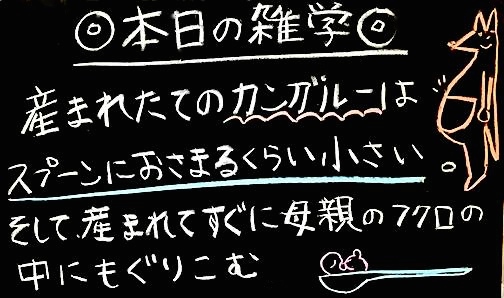 ◎本日の雑学◎
産まれたてのカンガルーは
スプーンにおさまるくらい小さい。
そして、産まれてすぐに母親のフクロの
中にもぐりこむ